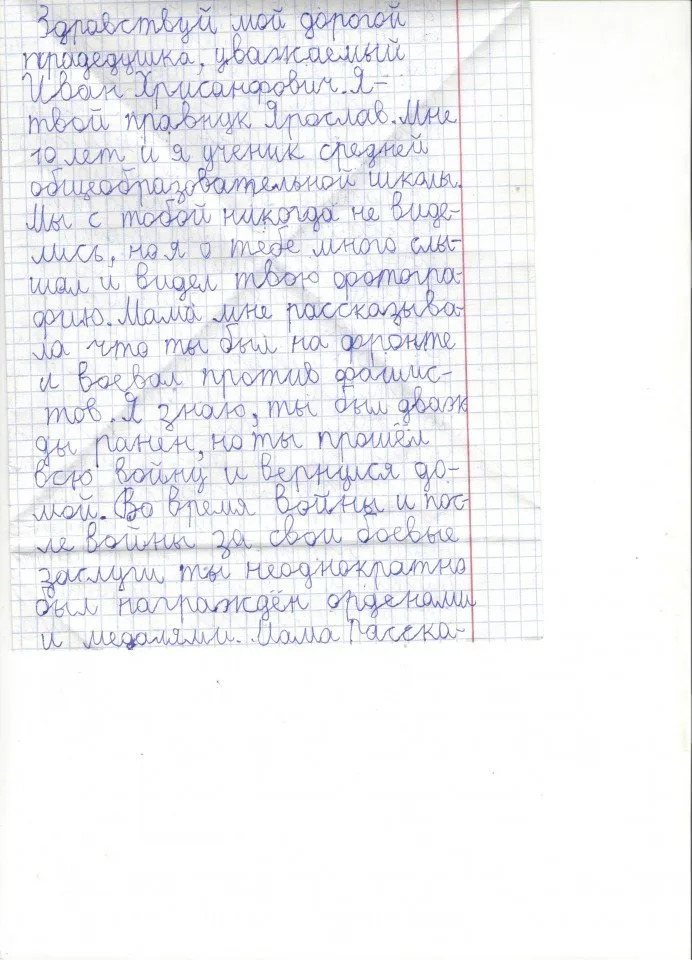 Здравствуй мой дорогой
прадедушка, уважаемый
Иван Хрисанфович. Я-
твой правнук Ярослав. Мне
10 лет и я ученик средней
общеобразовательной школы.
Мы с тобой никогда не виде-
лись, но я о тебе много слы-
шал и видел твою фотогра-
фию. Мама мне рассказыва-
ла что ты был на фронте
и воевал против фашис-
тов. Я знаю, ты был дваж
ды ранен, но ты прошёл
всю войну и вернулся до-
мой. Во время войны и пос-
ле войны за свои боевые
заслуги ты неоднократно
был награждён орденами
и медалями. Мама Расска-